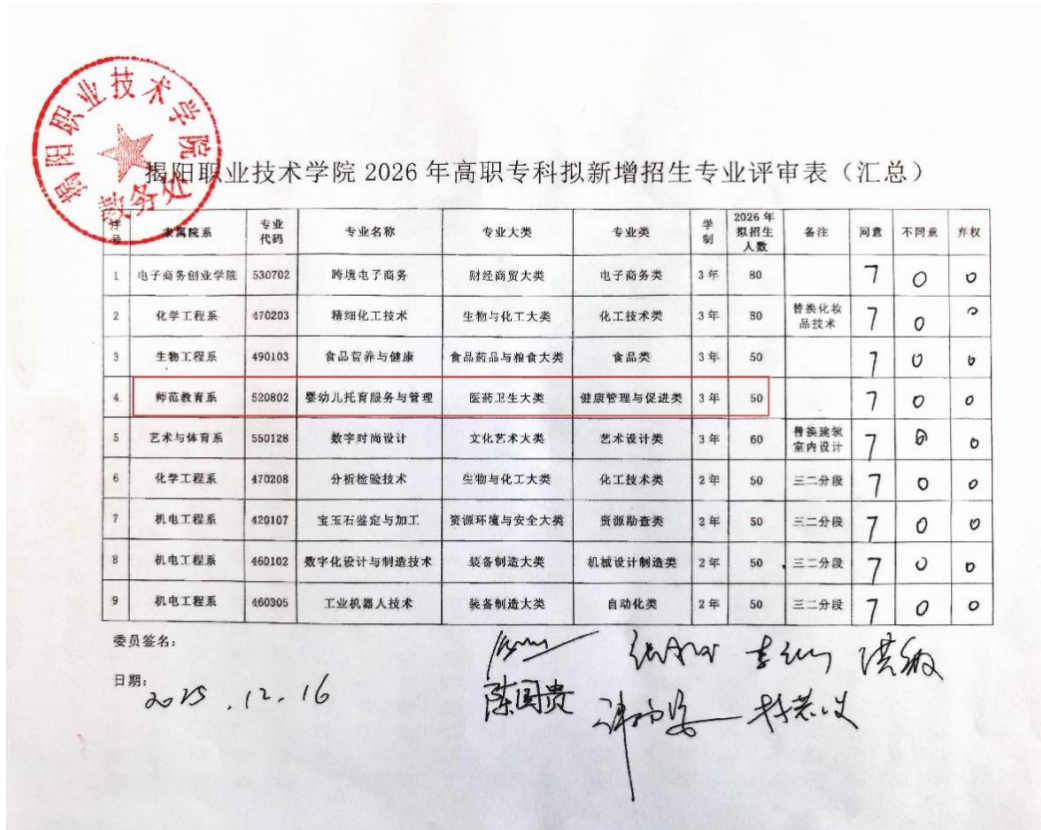 揭阳职业技术学院
教务处
揭阳职业技术学院 2026 年高职专科拟新增招生专业评审表（汇总）
序号 隶属院系 专业代码 专业名称 专业大类 专业类 学制 2026 年拟招生人数 备注 同意 不同意 弃权
1 电子商务创业学院 530702 跨境电子商务 财经商贸大类 电子商务类 3 年 80 7 0 0
2 化学工程系 470203 精细化工技术 生物与化工大类 化工技术类 3 年 80 替换化妆品技术 7 0 0
3 生物工程系 490103 食品营养与健康 食品药品与粮食大类 食品类 3 年 50 7 0 0
4 师范教育系 520802 婴幼儿托育服务与管理 医药卫生大类 健康管理与促进类 3 年 50 7 0 0
5 艺术与体育系 550128 数字时尚设计 文化艺术大类 艺术设计类 3 年 60 替换建筑室内设计 7 0 0
6 化学工程系 470208 分析检验技术 生物与化工大类 化工技术类 2 年 50 三二分段 7 0 0
7 机电工程系 420107 宝玉石鉴定与加工 资源环境与安全大类 资源勘查类 2 年 50 三二分段 7 0 0
8 机电工程系 460102 数字化设计与制造技术 装备制造大类 机械设计制造类 2 年 50 三二分段 7 0 0
9 机电工程系 460305 工业机器人技术 装备制造大类 自动化类 2 年 50 三二分段 7 0 0
委员签名：
陈国贵
日期：2025.12.16